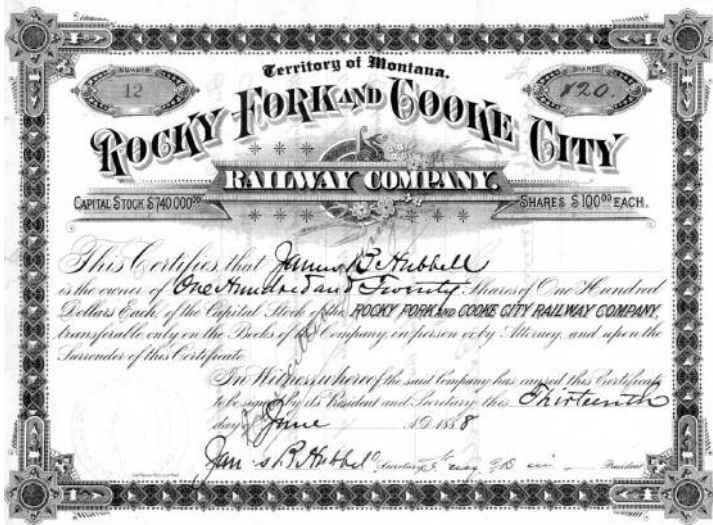 Territory of Montana.
NUMBER
12
SHARES
120.
ROCKY FORK AND COOKE CITY
RAILWAY COMPANY.
CAPITAL STOCK $740.000⁰⁰
SHARES $100⁰⁰ EACH.
This Certifies that James B. Hubbell
is the owner of One Hundred and Twenty Shares of One Hundred
Dollars Each, of the Capital Stock of the ROCKY FORK AND COOKE CITY RAILWAY COMPANY,
transferable only on the Books of the Company, in person or by Attorney, and upon the
Surrender of this Certificate
In Witness whereof the said Company has caused this Certificate
to be signed by its President and Secretary this Thirteenth
day of June A.D. 1888
Hubbell Secretary President